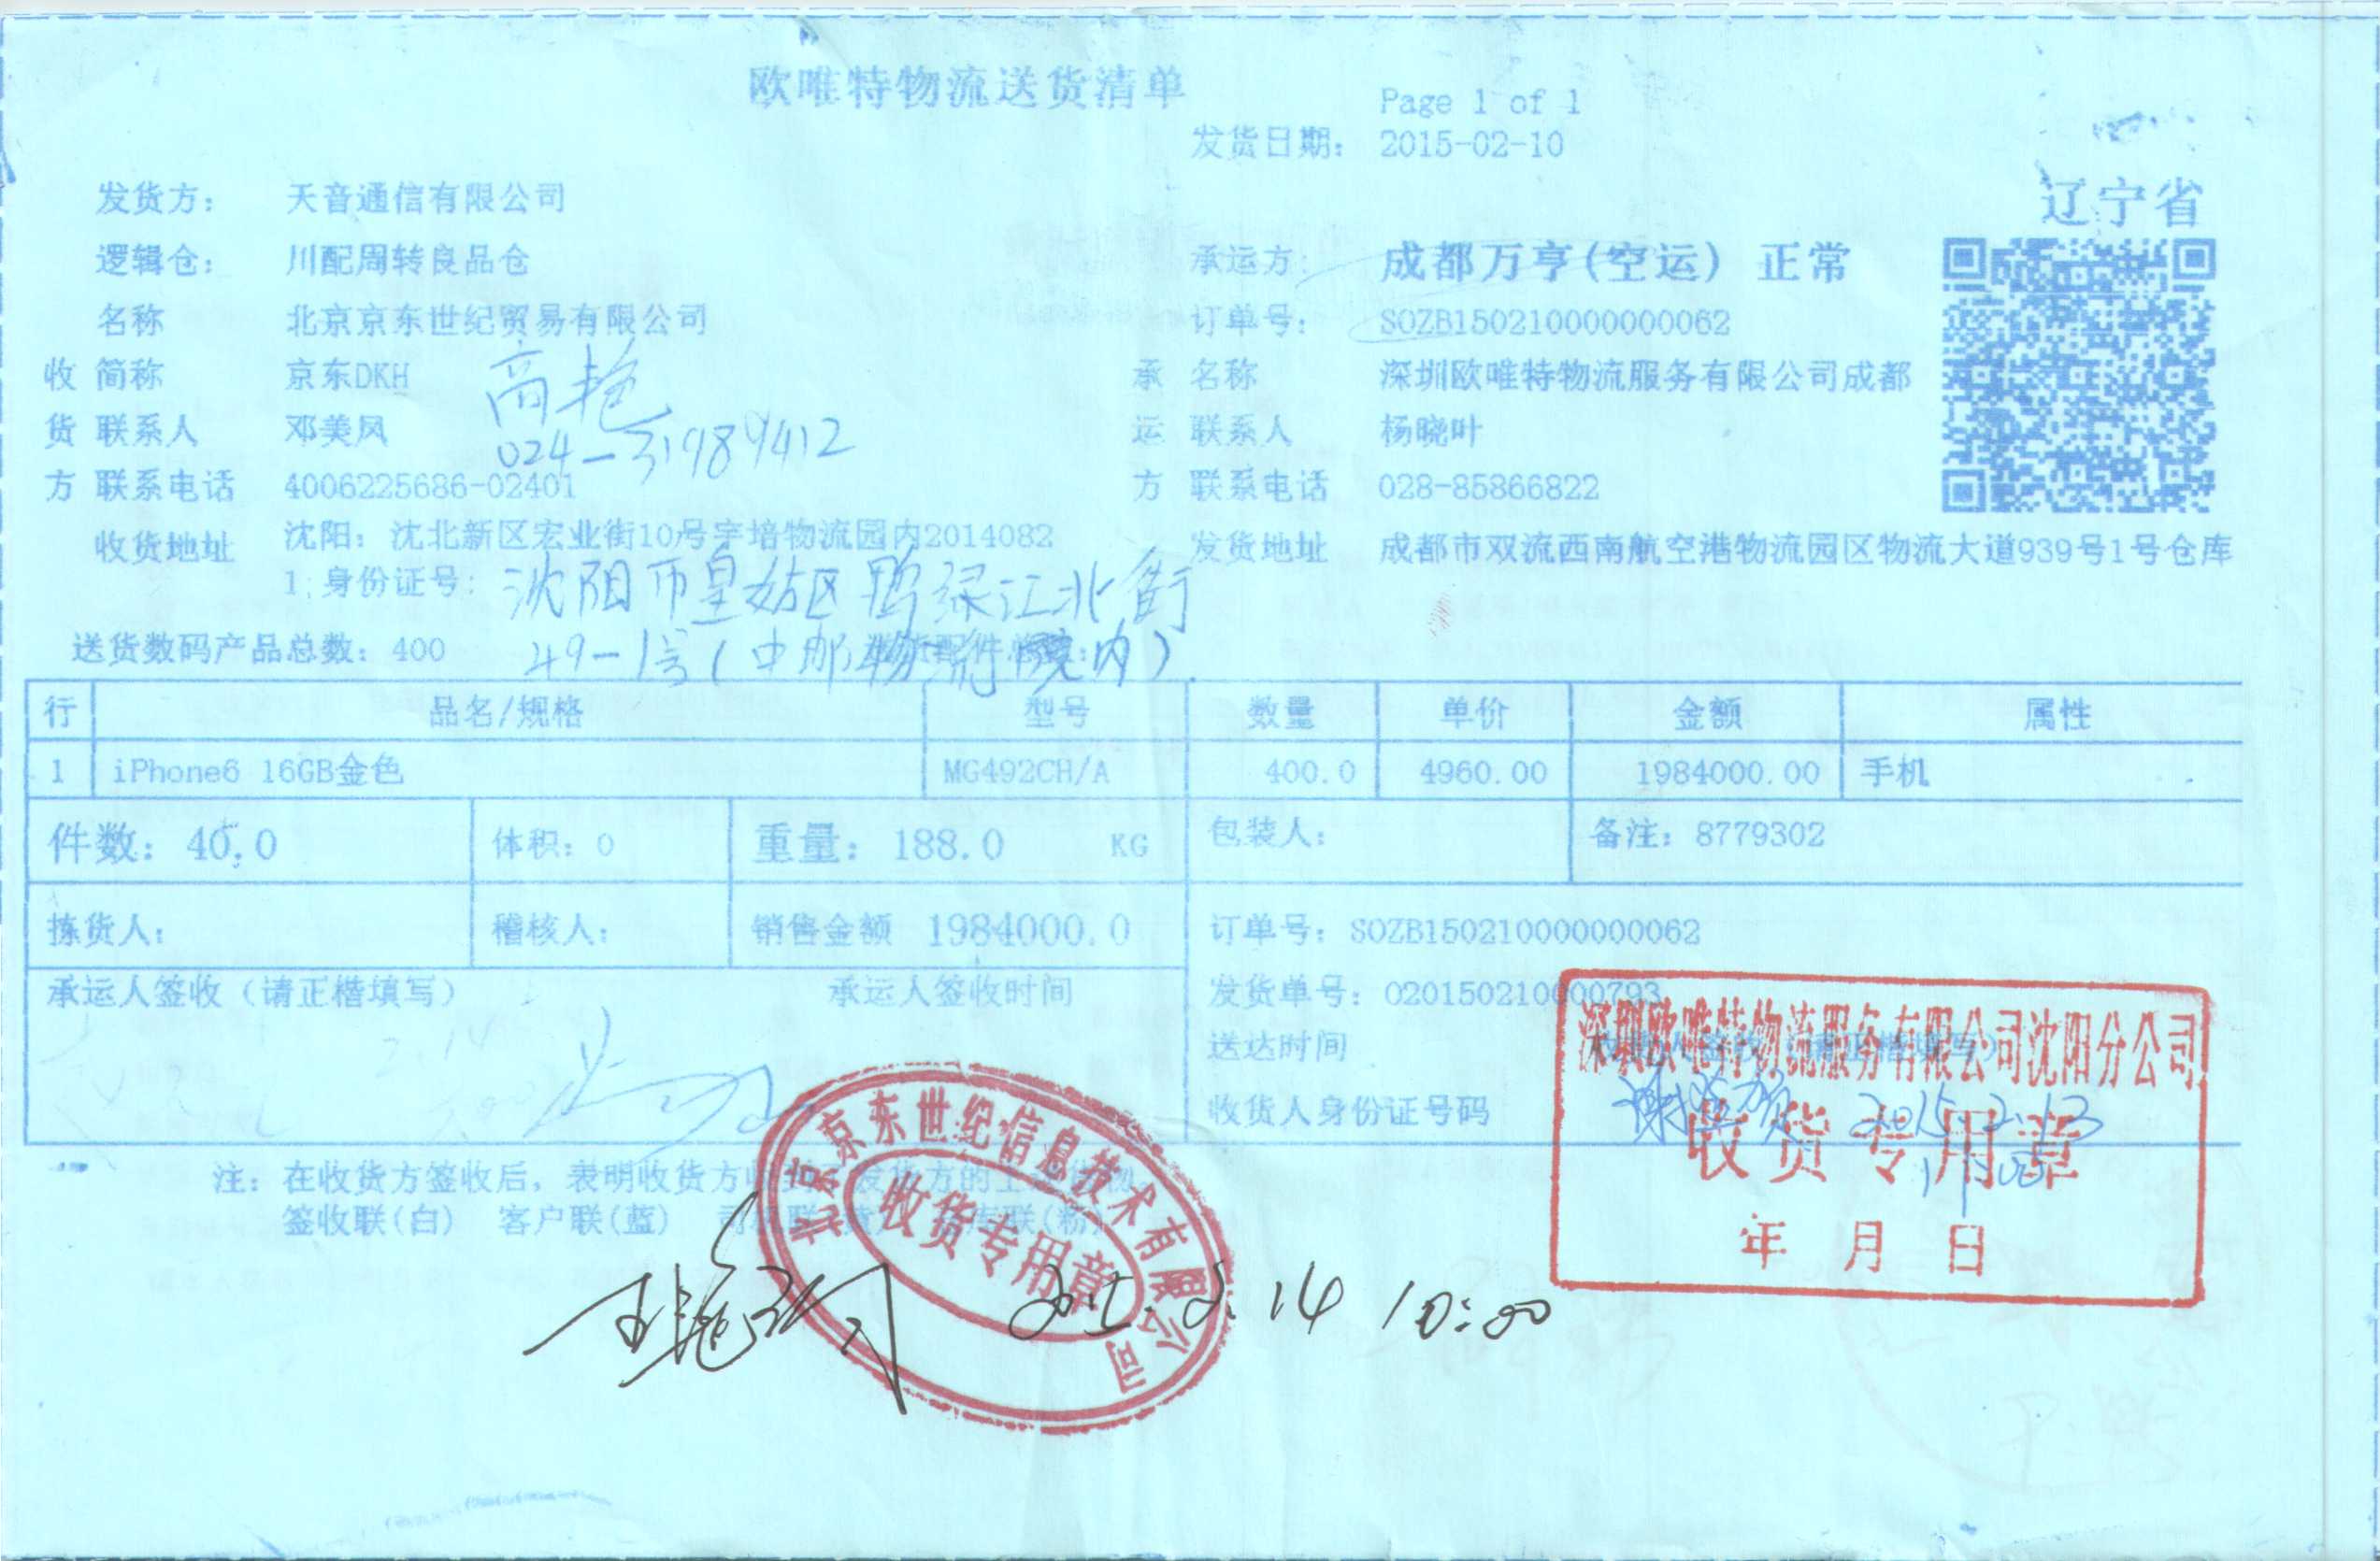 欧唯特物流送货清单
Page 1 of 1
发货日期： 2015-02-10
辽宁省
发货方： 天音通信有限公司
逻辑仓： 川配周转良品仓
承运方： 成都万亨(空运) 正常
名称 北京京东世纪贸易有限公司
订单号： SOZB150210000000062
收 简称 京东DKH
承 名称 深圳欧唯特物流服务有限公司成都
货 联系人 邓美凤
024-31989412
运 联系人 杨晓叶
方 联系电话 4006225686-02401
方 联系电话 028-85866822
收货地址 沈阳：沈北新区宏业街10号宇培物流园内2014082
1;身份证号：
发货地址 成都市双流西南航空港物流园区物流大道939号1号仓库
沈阳市皇姑区鸭绿江北街
49-1号(中邮物流院内).
送货数码产品总数：400
行 品名/规格 型号 数量 单价 金额 属性
1 iPhone6 16GB金色 MG492CH/A 400.0 4960.00 1984000.00 手机
件数：40.0 体积：0 重量：188.0 KG 包装人： 备注：8779302
拣货人： 稽核人： 销售金额 1984000.0 订单号：SOZB150210000000062
承运人签收（请正楷填写） 承运人签收时间
发货单号：020150210000793
送达时间 收货人签收（请正楷填写）
收货人身份证号码
深圳欧唯特物流服务有限公司沈阳分公司
收货专用章
年 月 日
2015.2.13
2.14
注：在收货方签收后，表明收货方收到了发货方的上述货物。
签收联(白) 客户联(蓝) 司机联(黄) 仓库联(粉)
北京京东世纪信息技术有限公司
收货专用章
2015.2.14 10:00